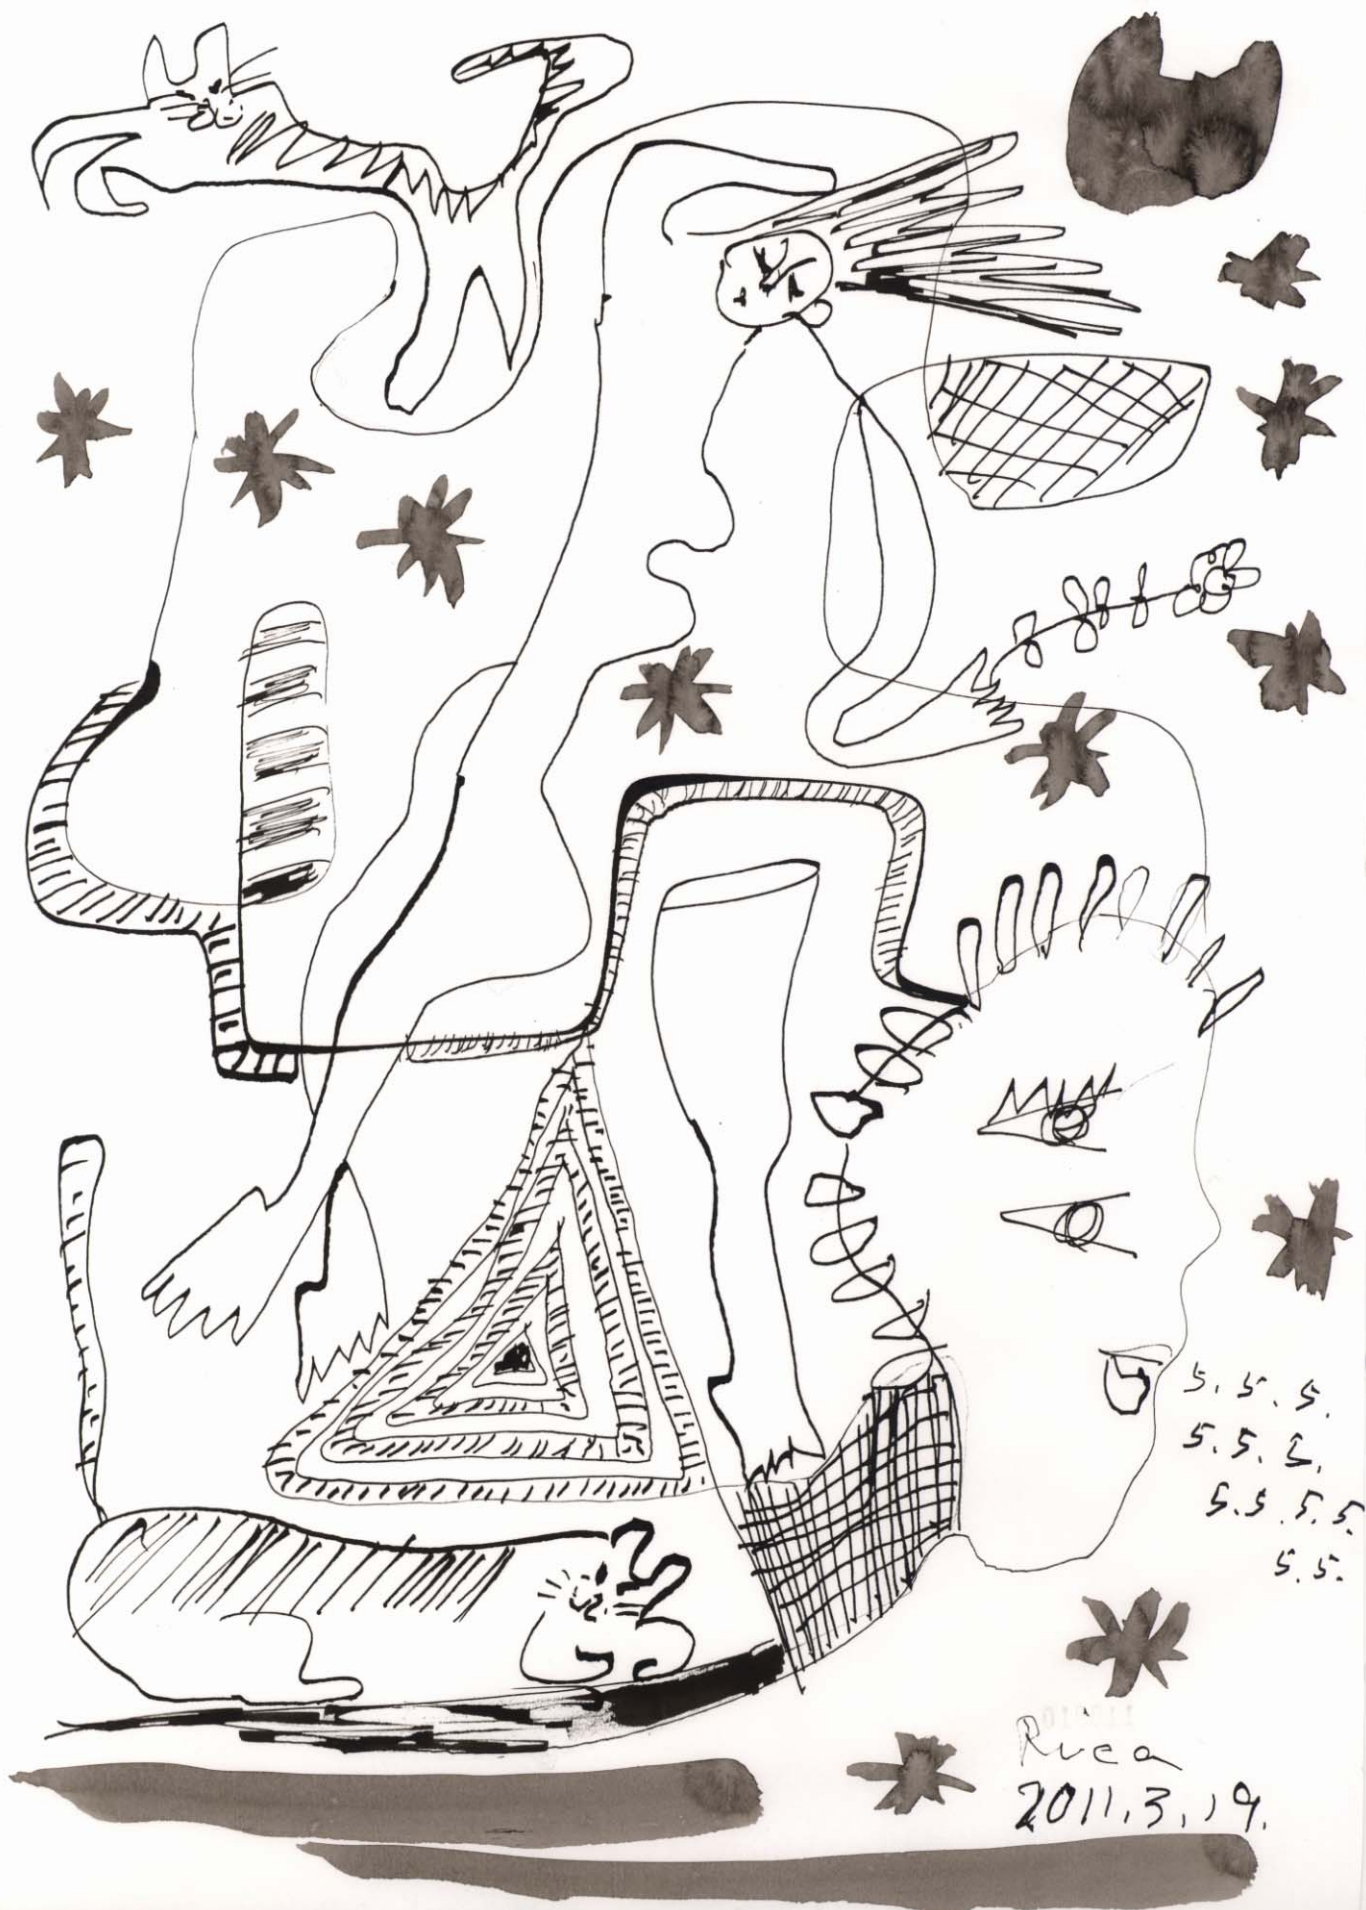 5. 5. 5.
5. 5. 5.
5. 5. 5. 5.
5. 5.
Ruca
2011.3.19.